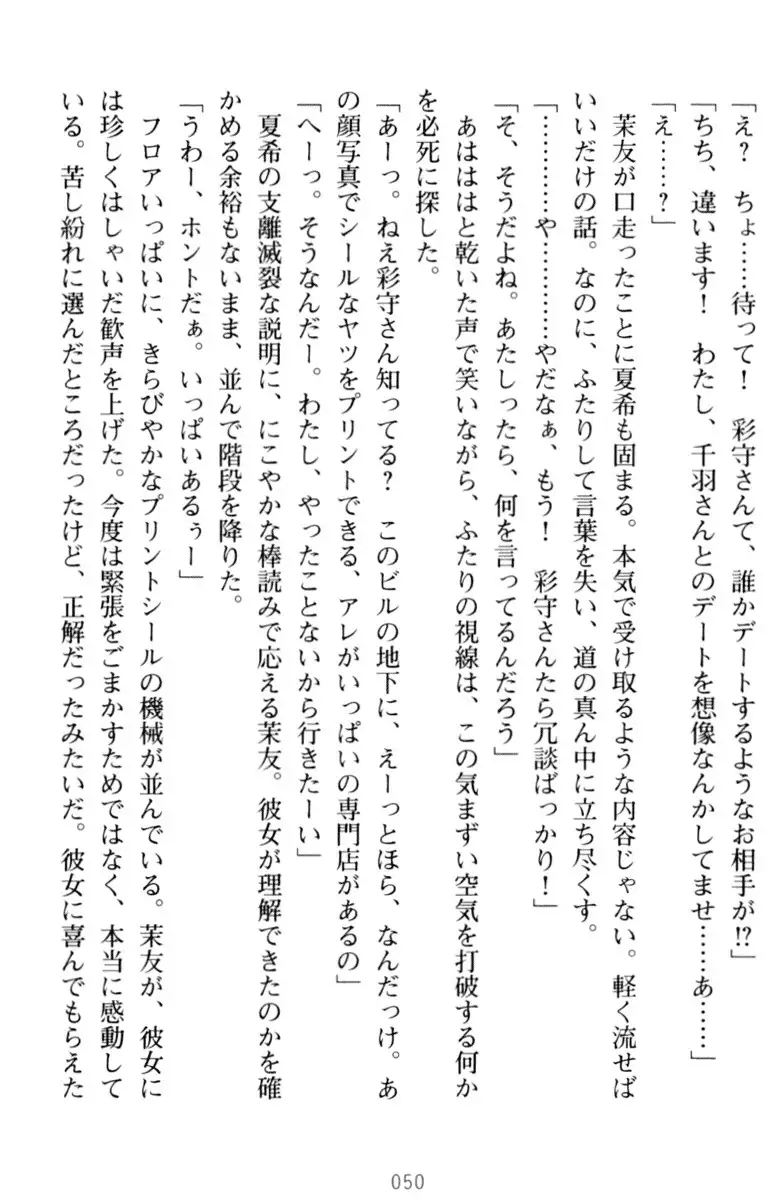 「え?　ちょ……待って!　彩守さんて、誰かデートするようなお相手が!?」
「ちち、違います!　わたし、千羽さんとのデートを想像なんかしてませ……あ……」
「え……?」
　茉友が口走ったことに夏希も固まる。本気で受け取るような内容じゃない。軽く流せば
いいだけの話。なのに、ふたりして言葉を失い、道の真ん中に立ち尽くす。
「…………や…………やだなぁ、もう!　彩守さんたら冗談ばっかり!」
「そ、そうだよね。あたしったら、何を言ってるんだろう」
　あはははと乾いた声で笑いながら、ふたりの視線は、この気まずい空気を打破する何か
を必死に探した。
「あーっ。ねえ彩守さん知ってる?　このビルの地下に、えーっとほら、なんだっけ。あ
の顔写真でシールなヤツをプリントできる、アレがいっぱいの専門店があるの」
「へーっ。そうなんだー。わたし、やったことないから行きたーい」
　夏希の支離滅裂な説明に、にこやかな棒読みで応える茉友。彼女が理解できたのかを確
かめる余裕もないまま、並んで階段を降りた。
「うわー、ホントだぁ。いっぱいあるぅー」
　フロアいっぱいに、きらびやかなプリントシールの機械が並んでいる。茉友が、彼女に
は珍しくはしゃいだ歓声を上げた。今度は緊張をごまかすためではなく、本当に感動して
いる。苦し紛れに選んだところだったけど、正解だったみたいだ。彼女に喜んでもらえた
050